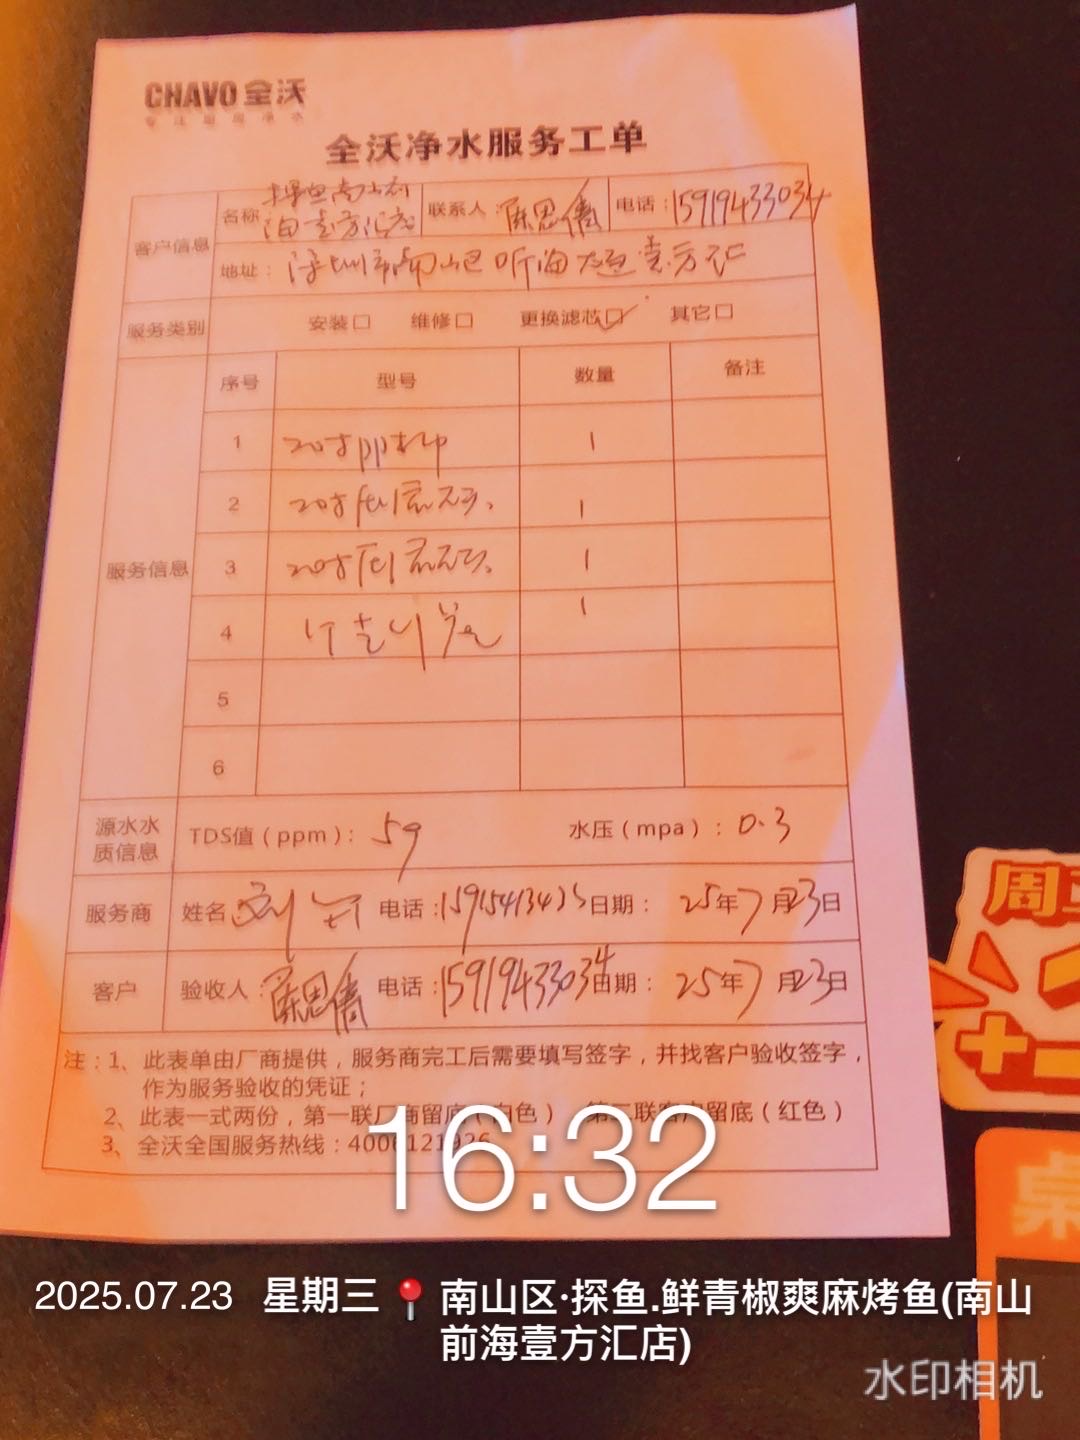 CHAVO 全沃
专注厨房净水
全沃净水服务工单
客户信息 名称 探鱼南山前海壹方汇店 联系人: 陈思倩 电话: 15919433034
地址: 深圳市南山区听海大道壹方汇
服务类别 安装□ 维修□ 更换滤芯☑ 其它□
服务信息 序号 型号 数量 备注
1 20寸pp棉 1
2 20寸 1
3 20寸 1
4 1
5
6
源水水质信息 TDS值（ppm）: 59 水压（mpa）: 0.3
服务商 姓名 刘 电话: 日期: 25年7月23日
客户 验收人: 陈思倩 电话: 15919433034 日期: 25年7月23日
注: 1、此表单由厂商提供，服务商完工后需要填写签字，并找客户验收签字，
作为服务验收的凭证；
2、此表一式两份，第一联厂商留底（白色） 第二联客户留底（红色）
3、全沃全国服务热线: 4006121926
16:32
2025.07.23 星期三 南山区·探鱼.鲜青椒爽麻烤鱼(南山
前海壹方汇店)
水印相机
周
桌